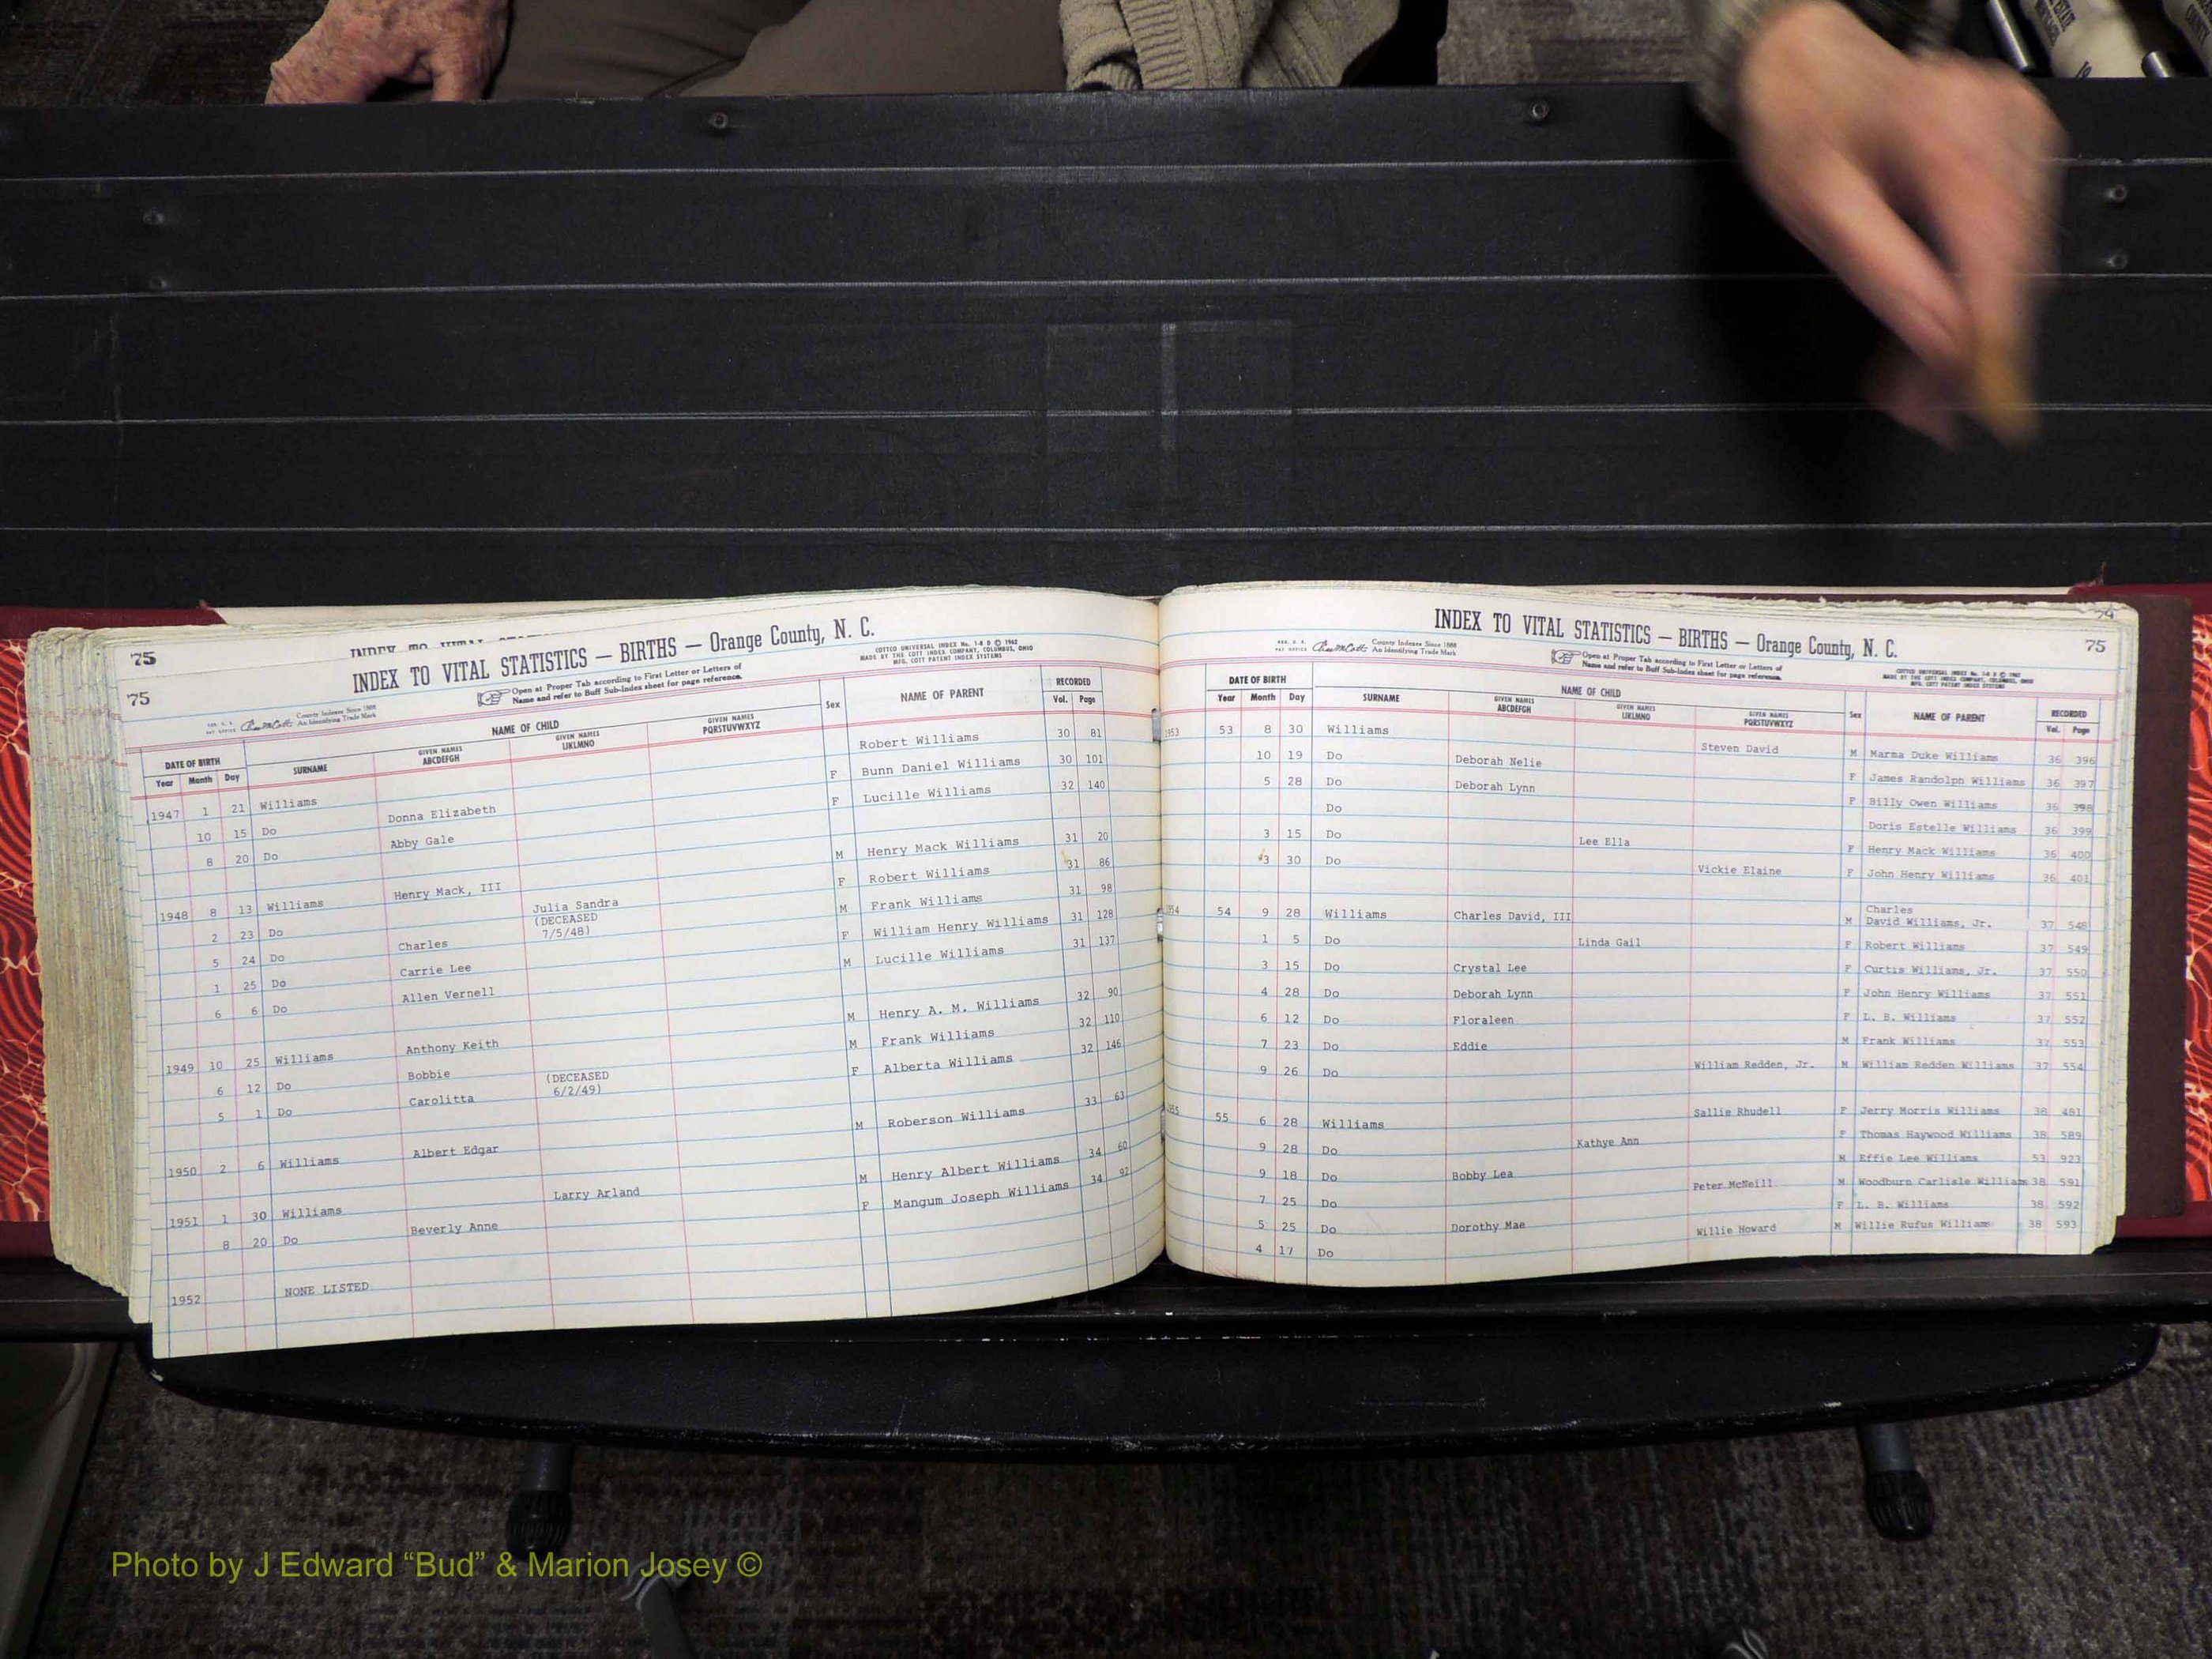 INDEX TO VITAL
75
INDEX TO VITAL STATISTICS — BIRTHS — Orange County, N. C.
75
County Indexes Since 1888
An Identifying Trade Mark
Open at Proper Tab according to First Letter or Letters of
Name and refer to Buff Sub-Index sheet for page reference.
COTTCO UNIVERSAL INDEX No. 1-8 D © 1962
MADE BY THE COTT INDEX COMPANY, COLUMBUS, OHIO
MFG. COTT PATENT INDEX SYSTEMS
DATE OF BIRTH NAME OF CHILD Sex NAME OF PARENT RECORDED
Year Month Day SURNAME GIVEN NAMES ABCDEFGH GIVEN NAMES IJKLMNO GIVEN NAMES PQRSTUVWXYZ Vol. Page
1947 1 21 Williams Robert Williams 30 81
10 15 Do Donna Elizabeth F Bunn Daniel Williams 30 101
8 20 Do Abby Gale F Lucille Williams 32 140
1948 8 13 Williams Henry Mack, III M Henry Mack Williams 31 20
2 23 Do Julia Sandra F Robert Williams 31 86
(DECEASED
7/5/48)
5 24 Do Charles M Frank Williams 31 98
1 25 Do Carrie Lee F William Henry Williams 31 128
6 6 Do Allen Vernell M Lucille Williams 31 137
1949 10 25 Williams Anthony Keith M Henry A. M. Williams 32 90
6 12 Do Bobbie M Frank Williams 32 110
5 1 Do Carolitta (DECEASED F Alberta Williams 32 146
6/2/49)
1950 2 6 Williams Albert Edgar M Roberson Williams 33 63
1951 1 30 Williams Larry Arland M Henry Albert Williams 34 60
8 20 Do Beverly Anne F Mangum Joseph Williams 34 92
1952 NONE LISTED
INDEX TO VITAL STATISTICS — BIRTHS — Orange County, N. C.
75
County Indexes Since 1888
An Identifying Trade Mark
Open at Proper Tab according to First Letter or Letters of
Name and refer to Buff Sub-Index sheet for page reference.
DATE OF BIRTH NAME OF CHILD Sex NAME OF PARENT RECORDED
Year Month Day SURNAME GIVEN NAMES ABCDEFGH GIVEN NAMES IJKLMNO GIVEN NAMES PQRSTUVWXYZ Vol. Page
1953 53 8 30 Williams Steven David M Marma Duke Williams 36 396
10 19 Do Deborah Nelie F James Randolph Williams 36 397
5 28 Do Deborah Lynn F Billy Owen Williams 36 398
Do Doris Estelle Williams 36 399
3 15 Do Lee Ella F Henry Mack Williams 36 400
3 30 Do Vickie Elaine F John Henry Williams 36 401
1954 54 9 28 Williams Charles David, III M Charles
David Williams, Jr. 37 548
1 5 Do Linda Gail F Robert Williams 37 549
3 15 Do Crystal Lee F Curtis Williams, Jr. 37 550
4 28 Do Deborah Lynn F John Henry Williams 37 551
6 12 Do Floraleen F L. B. Williams 37 552
7 23 Do Eddie M Frank Williams 37 553
9 26 Do William Redden, Jr. M William Redden Williams 37 554
55 6 28 Williams Sallie Rhudell F Jerry Morris Williams 38 481
9 28 Do Kathye Ann F Thomas Haywood Williams 38 589
9 18 Do Bobby Lea M Effie Lee Williams 53 923
7 25 Do Peter McNeill M Woodburn Carlisle Williams 38 591
5 25 Do Dorothy Mae F L. B. Williams 38 592
4 17 Do Willie Howard M Willie Rufus Williams 38 593
Photo by J Edward “Bud” & Marion Josey ©